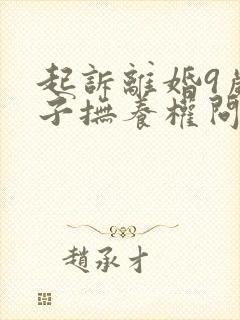 起訴離婚9歲
子撫養權問
趙承才